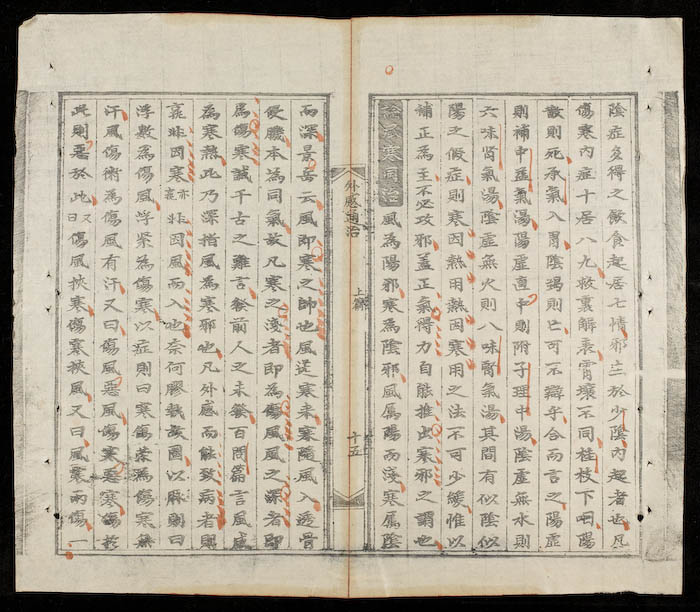 陰症多得之飲食起居七情邪立於少陰內起者也凡
傷寒內症十居八九救裏解表霄壤不同桂枝下咽陽
散則死承氣入胃陰竭則亡可不辯乎合而言之陽虛
則補中益氣湯陽虛直中則附子理中湯陰虛無水則
六味腎氣湯陰虛無火則八味腎氣湯其間有似陰似
陽之假症則寒因熱用熱因寒用之法不可少緩惟以
補正為主不必攻邪蓋正氣得力自能推出寒邪之謂也
論風寒同治 風為陽邪寒為陰邪風屬陽而淺寒屬陰
外感通治 上篇 十五
而深景岳云風即寒之帥也風送寒來寒隨風入透骨
侵肌本為同氣故凡寒之淺者即為傷風風之深者即
為傷寒誠千古之難言發前人之未發百問篇言風感
為寒熱此乃深指風為寒邪也凡外感而能致病者則
衰非因寒亦衰非因風而入也奈何膠執故圖以脉則曰
浮數為傷風浮緊為傷寒以症則曰寒傷榮為傷寒無
汗風傷衛為傷風有汗又曰傷風惡風傷寒惡寒傷於
此則惡於此又曰傷風挾寒傷寒挾風又曰風寒兩傷一